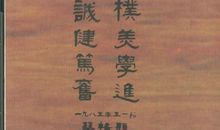 誠樸
健美
篤學
奮進
一九八五年五一